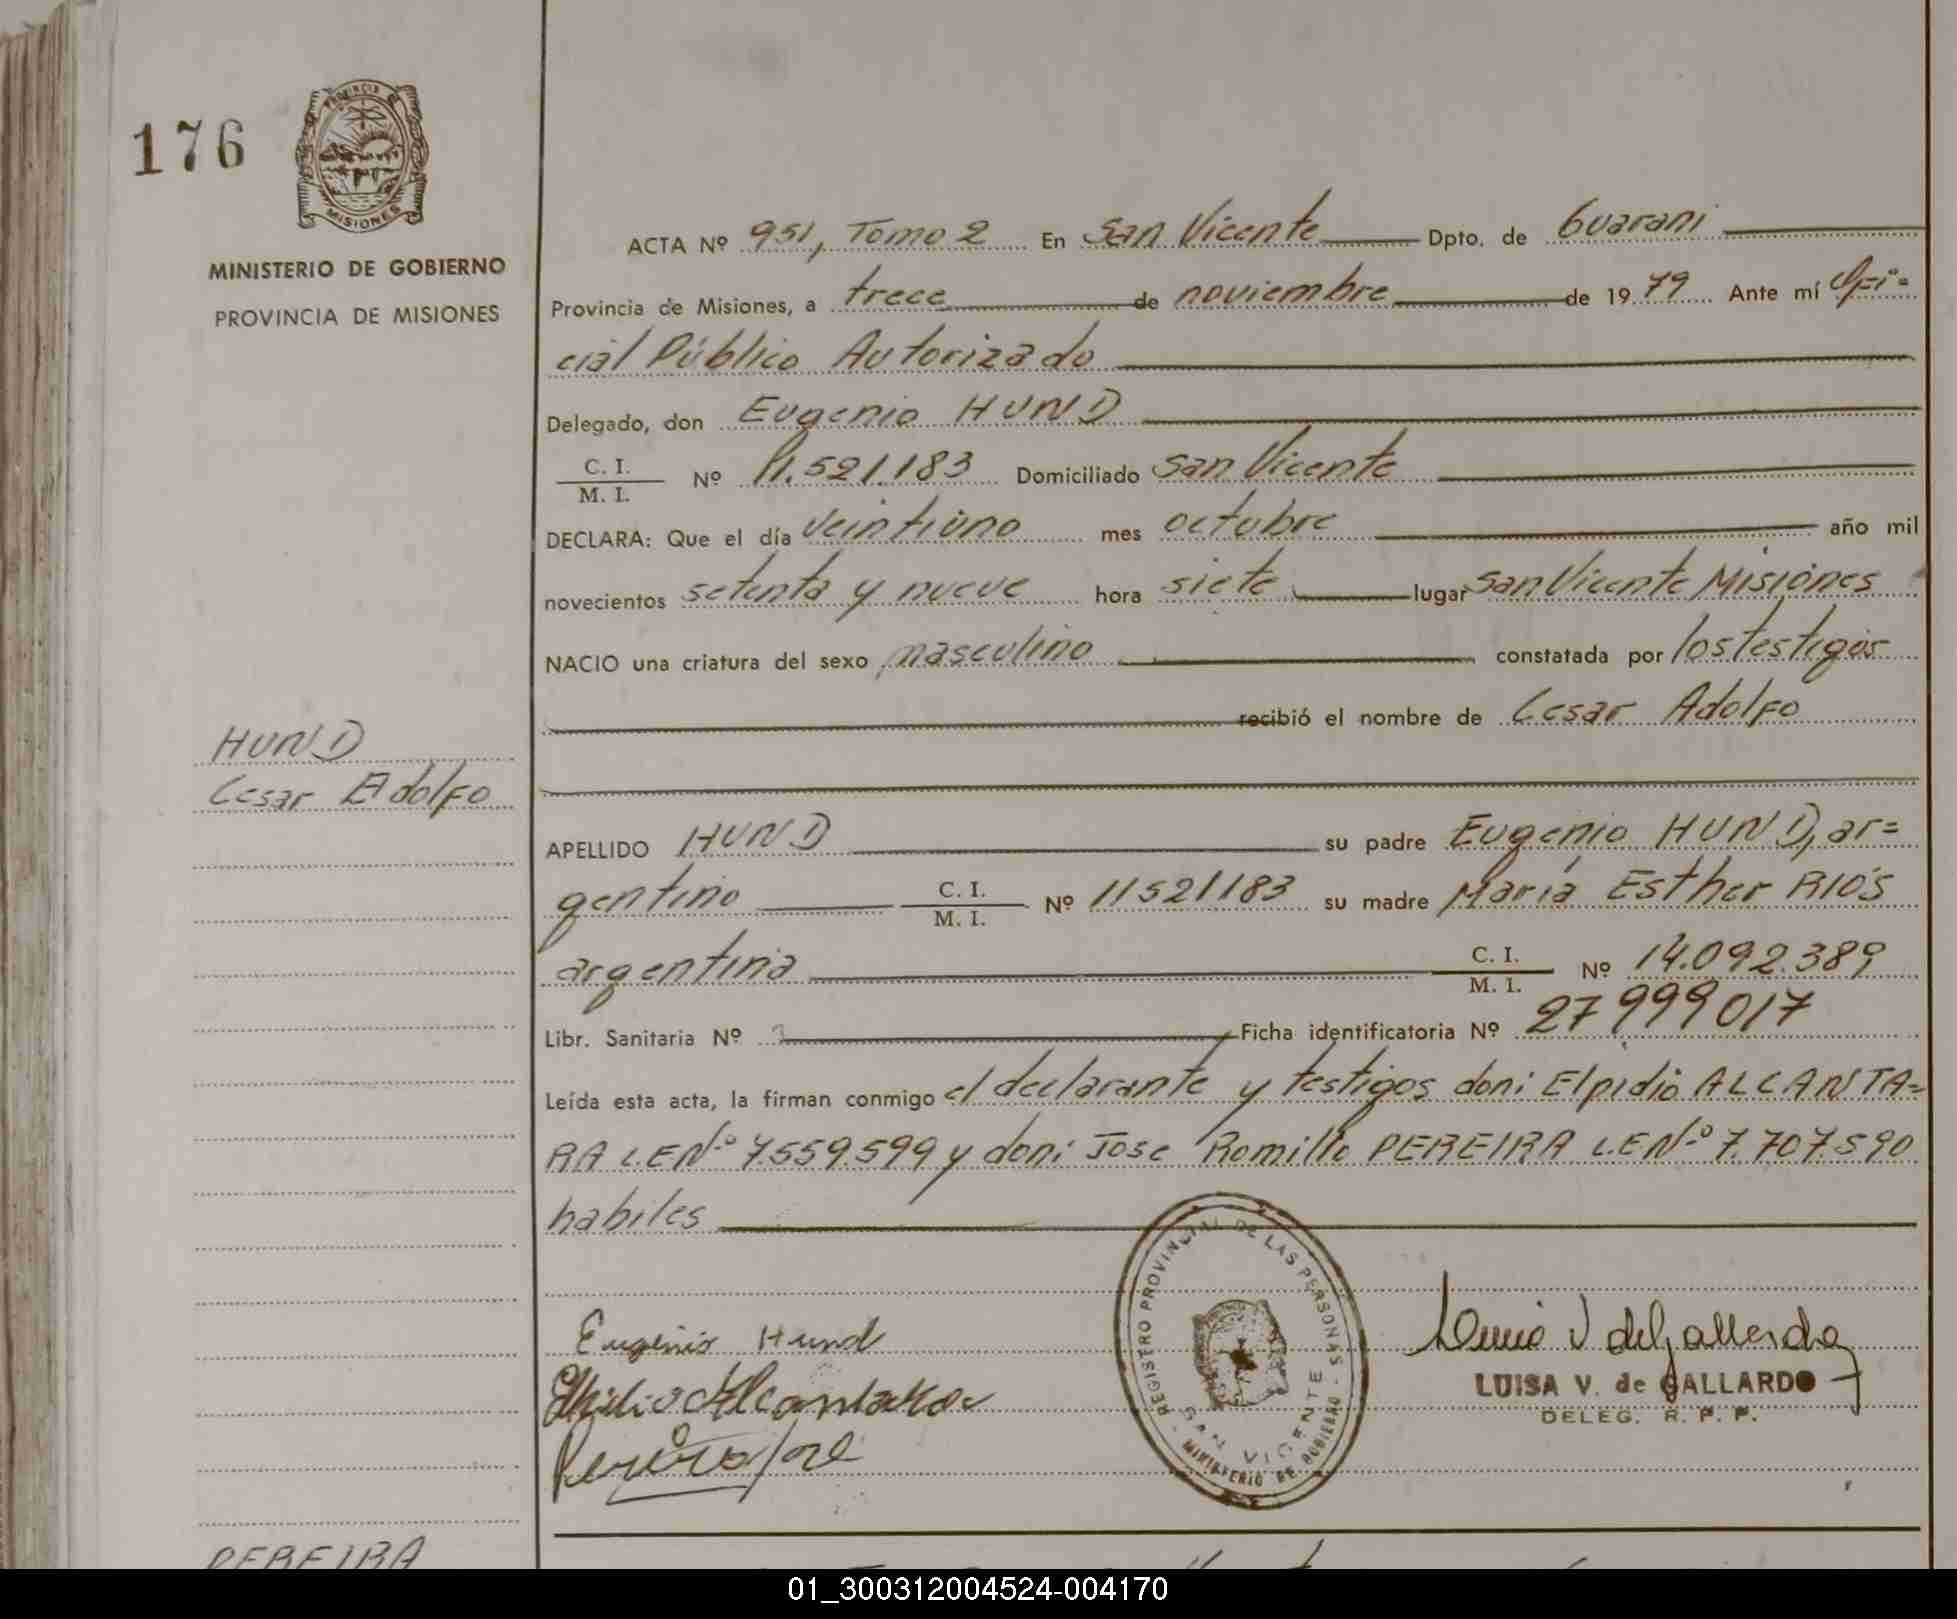 176
PROVINCIA DE
MISIONES
MINISTERIO DE GOBIERNO
PROVINCIA DE MISIONES
HUND
Cesar Adolfo
ACTA Nº 951, Tomo 2 En San Vicente Dpto. de Guarani
Provincia de Misiones, a trece de noviembre de 1979 Ante mí Ofi=
cial Público Autorizado
Delegado, don Eugenio HUND
C. I.
M. I.
Nº 11.521.183 Domiciliado San Vicente
DECLARA: Que el día veintiuno mes octubre año mil
novecientos setenta y nueve hora siete lugar San Vicente Misiones
NACIO una criatura del sexo masculino constatada por los testigos
recibió el nombre de Cesar Adolfo
APELLIDO HUND su padre Eugenio HUND, ar=
gentino C. I. M. I. Nº 11521183 su madre María Esther RIOS
argentina C. I. M. I. Nº 14.092.389
Libr. Sanitaria Nº Ficha identificatoria Nº 27999017
Leída esta acta, la firman conmigo el declarante y testigos don: Elpidio ALCANTA=
RA L.E Nº 7.559.599 y don: Jose Romillo PEREIRA L.E Nº 7.707.590
habiles
Eugenio Hund
Elpidio Alcantara
Pereira Jose
REGISTRO PROVINCIAL DE LAS PERSONAS
SAN VICENTE
MINISTERIO DE GOBIERNO
Luisa V de Gallardo
LUISA V. de GALLARDO
DELEG. R. P. P.
PEREIRA
01_300312004524-004170